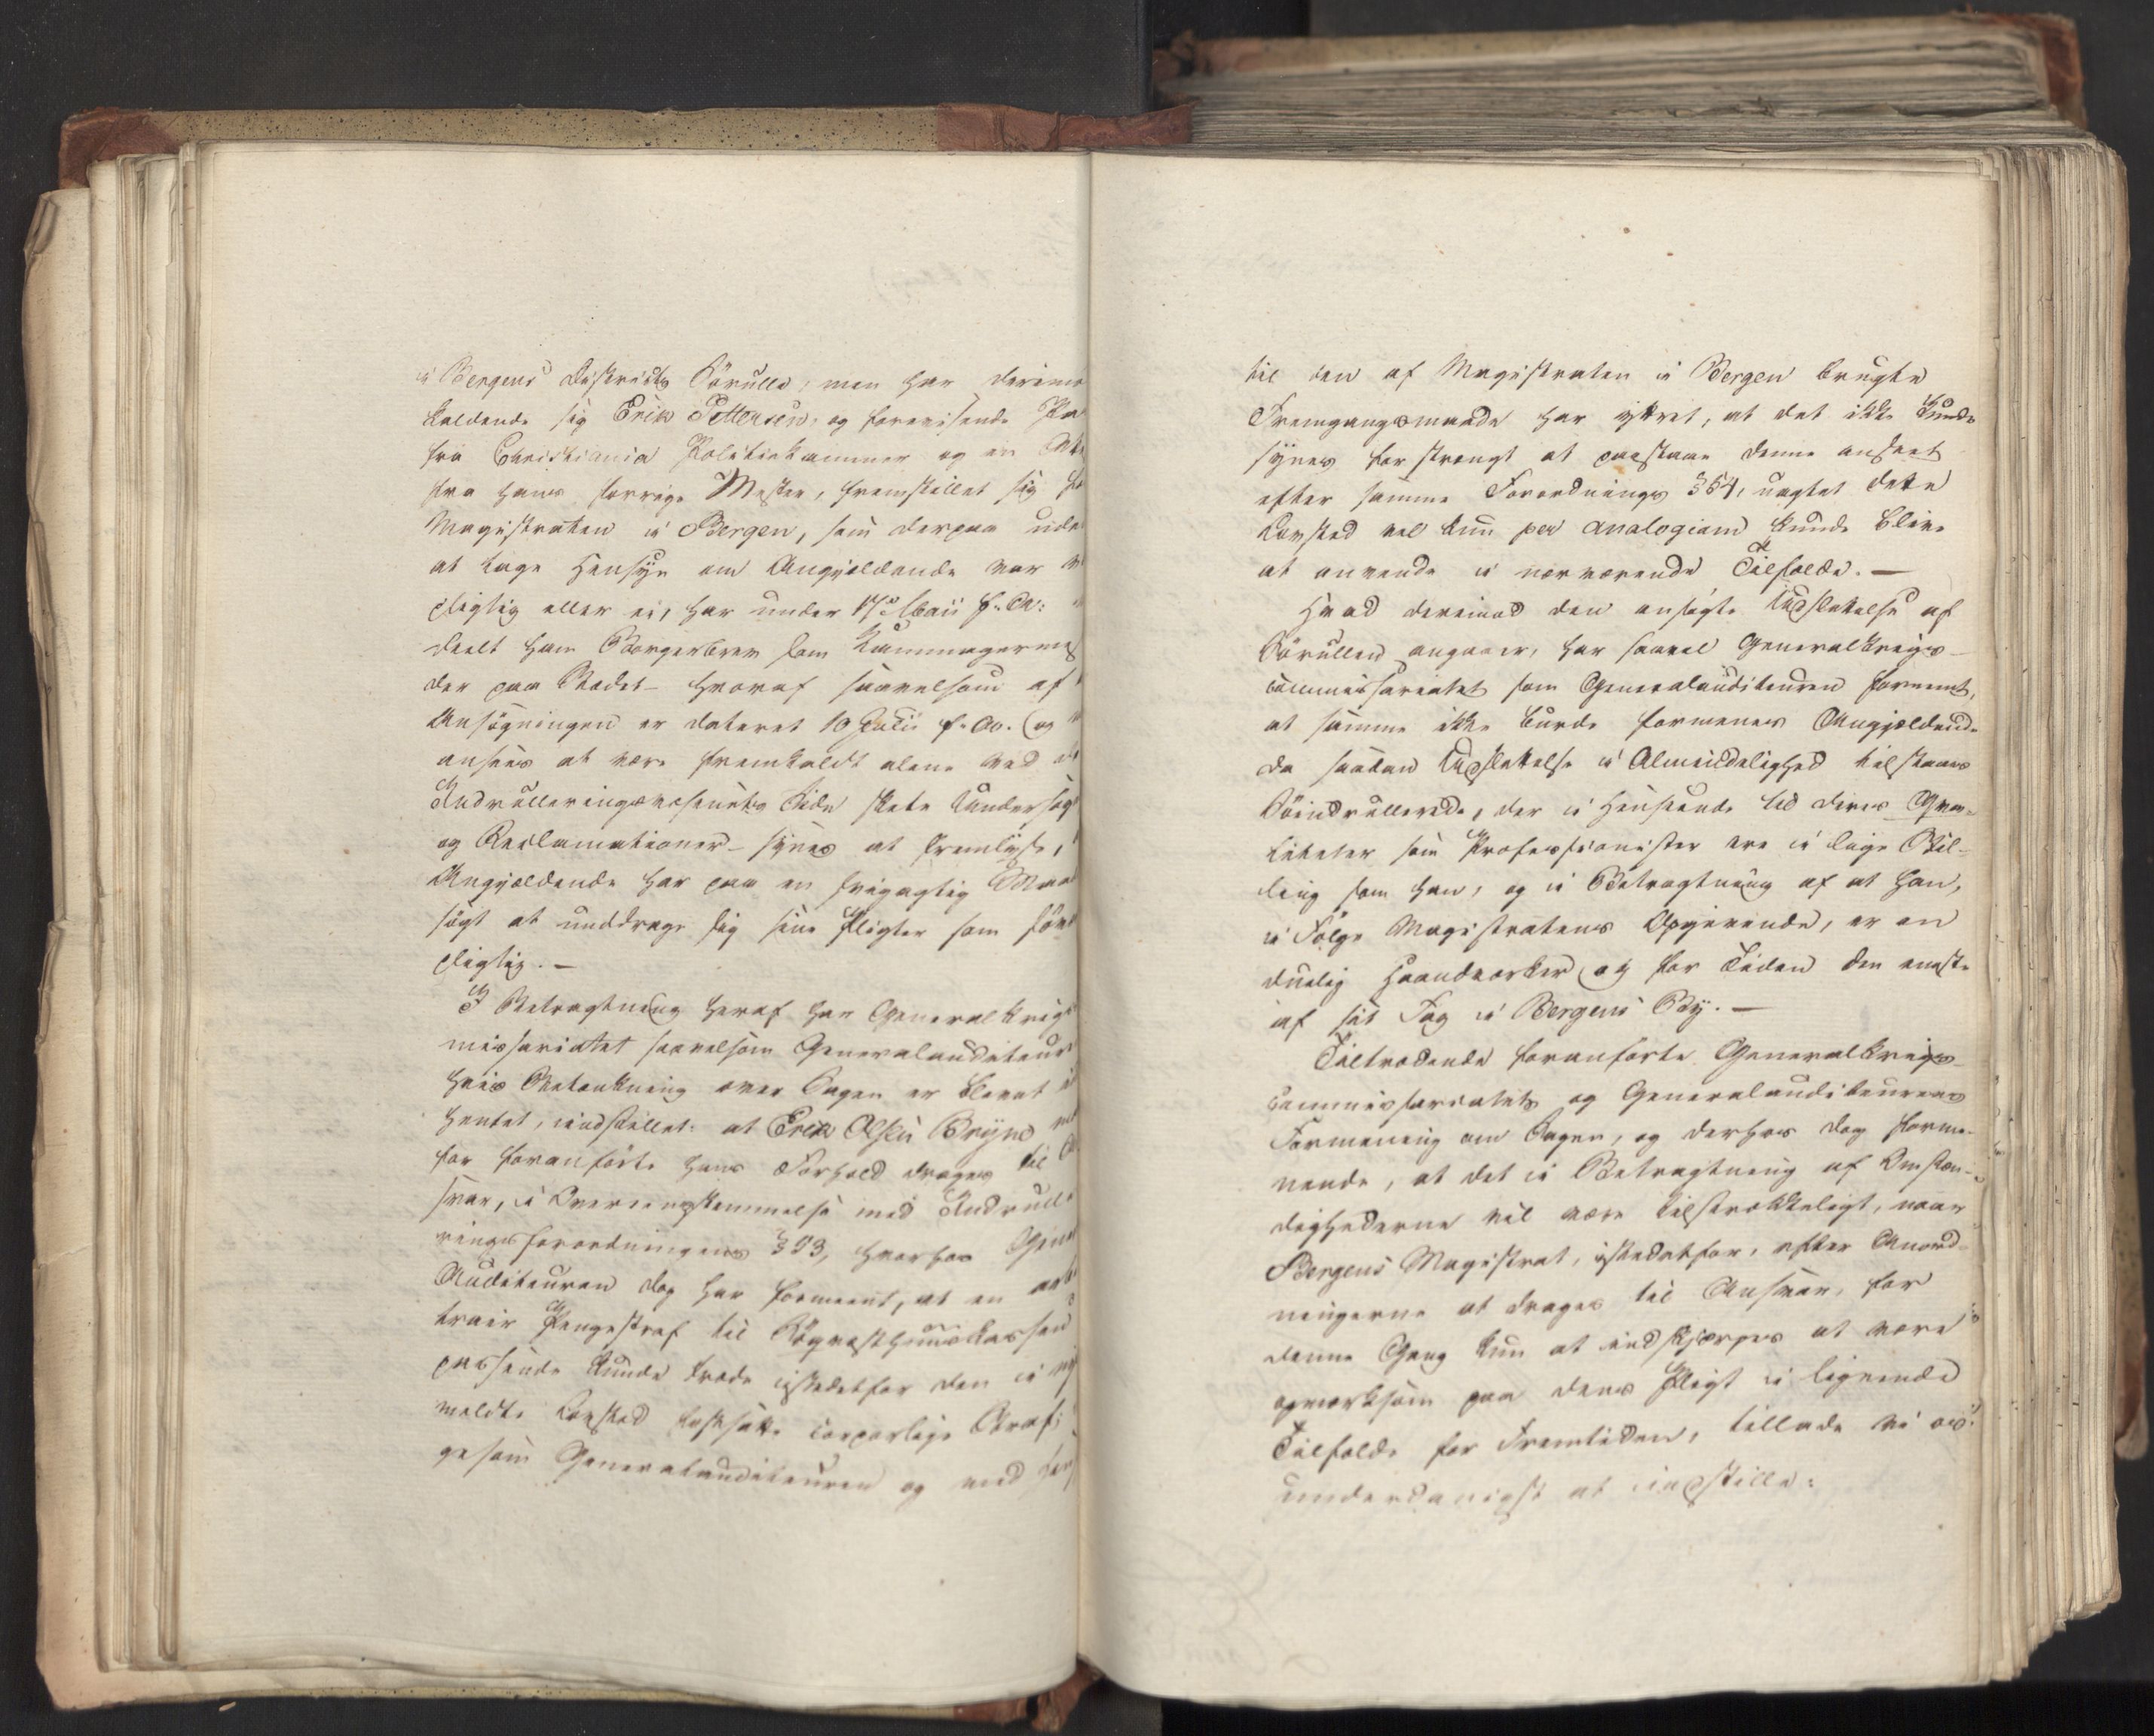 i Bergens Distrikts Sörulle, men har derimo
kaldende sig Erik Pettersen, og forevisende Pa
fra Christiania Politiekammer og en Att
fra hans forrige Mester, fremstillet sig fo
Magistraten i Bergen, som derpaa uden
at tage Hensyn om Angjeldende var v
pligtig eller ei, har under 17de Maii f. A.
deelt ham Borgerbrev som Kammagermes
der paa Stedet – hvoraf saavelsom af
Ansøgningen er dateret 10 Julii f. A. (og
ansees at være fremkaldt alene ved de
Indrulleringsvæsenets Side skete Undersøg
og Reclamationer – synes at fremlyse,
Angjældende har paa en svigagtig Maad
søgt at unddrage sig sine Pligter som söv
pligtig. –
I Betragtning heraf har Generalkrigs
missariatet saavelsom Generalauditeur
hvis Betænkning over Sagen er blevet ind
hentet, indstillet: at Erik Olsen Bryne ved
for foranførte hans Forhold drages til A
svar, i Overeensstemmelse med Indrulle
ringsforordningens § 93, hvorhos Gene
Auditeuren dog har formeent, at en arbi
trair Pengestraf til Søqvæsthuuskassen
passende kunde træde istedetfor den i ny
meldte Lovsted fastsatte corporlige Straf;
gesom Generalauditeuren og med Hen
til den af Magistraten i Bergen brugte
Fremgangsmaade har yttret, at det ikke kunde
synes for strengt at paastaae denne anseet
efter samme Forordnings § 64, uagtet dette
Lovsted vel kun per analogiam kunde blive
at anvende i nærværende Tilfælde. –
Hvad derimod den ansøgte Udslettelse af
Sørullen angaaer, har saavel Generalkrigs-
commissariatet som Generalauditeuren formeent,
at samme ikke burde formenes Angjeldende
da saadan Udslettelse i Almindelighed tilstaaes
Søindrullerede, der i Henseende til deres Qva-
liteter som Professionister ere i lige Stil-
ling som han, og i Betragtning af at han,
i Følge Magistratens Opgivende, er en
duelig Haandværker og for Tiden den eneste
af sit Fag i Bergens By. –
Tiltrædende foranførte Generalkrigs-
commissariatets og Generalauditeurens
Formening om Sagen, og derhos dog forme-
nende, at det i Betragtning af Omstæn-
dighederne vil være tilstrækkeligt, naar
Bergens Magistrat, istedetfor, efter Anord-
ningerne at drages til Ansvar, for
denne Gang kun at indskjærpes at være
opmærksom paa dens Pligt i lignende
Tilfælde for Fremtiden, tillade vi os
underdanigst at indstille: